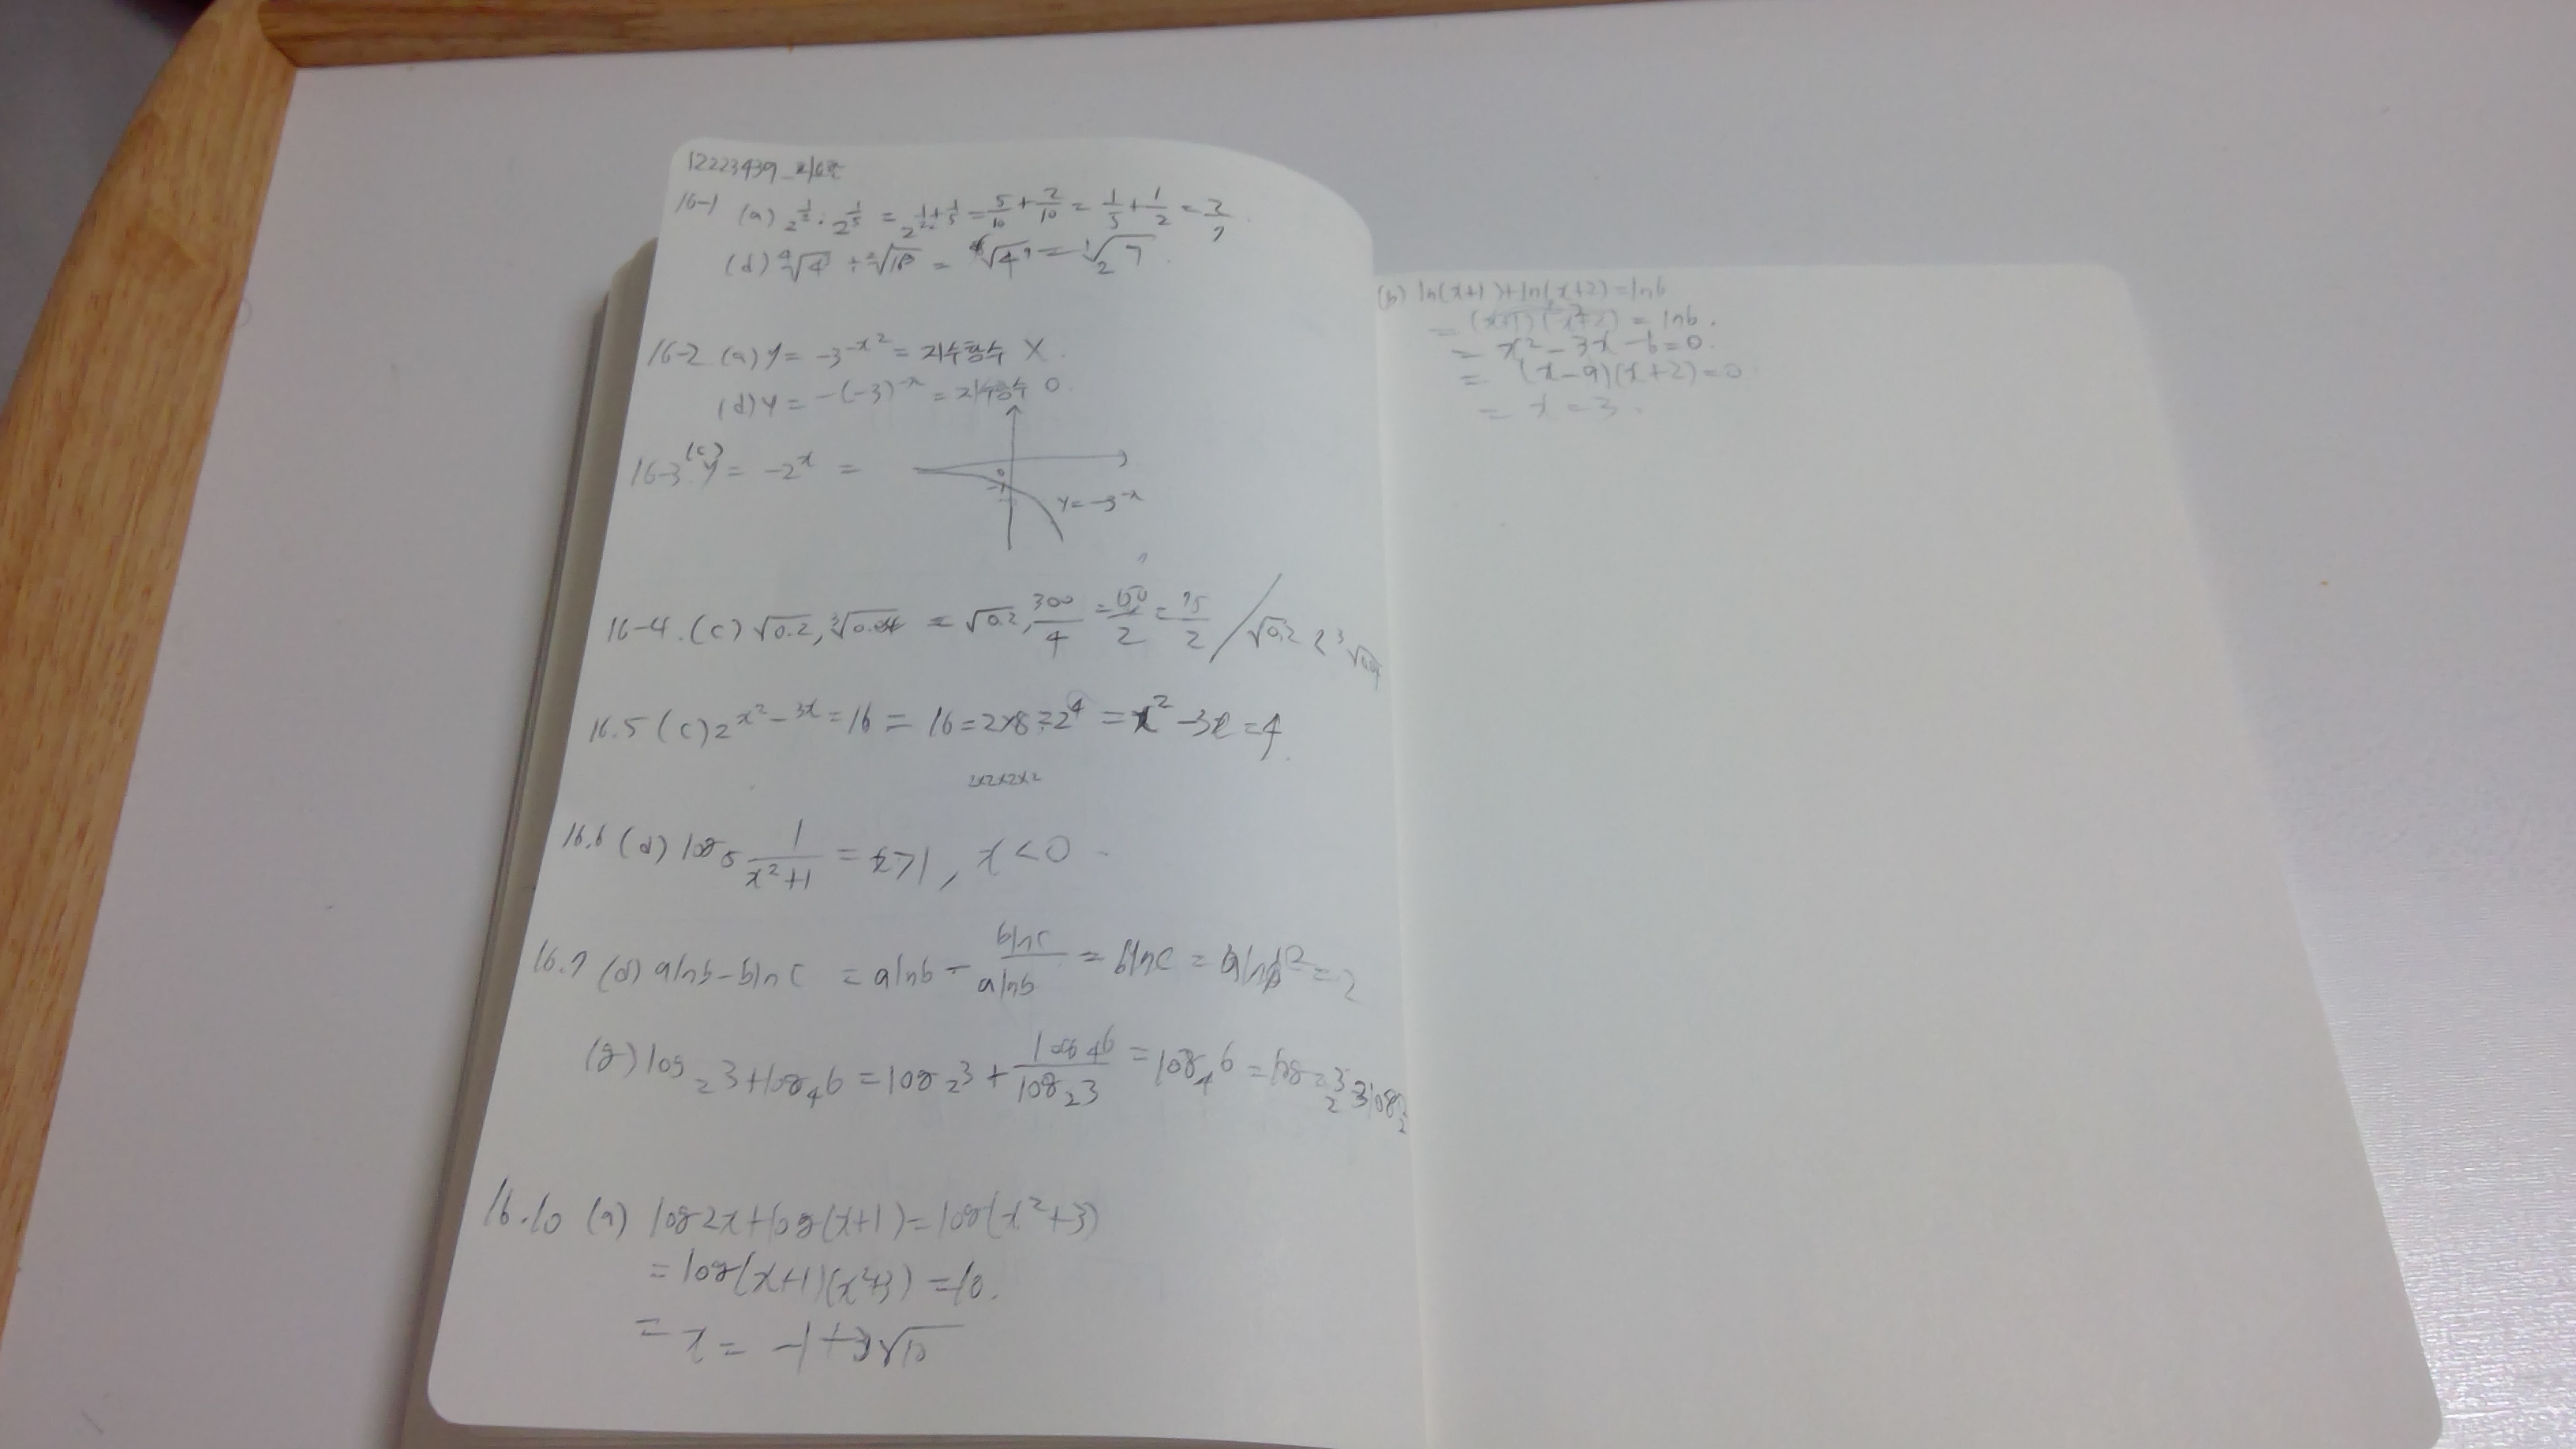 12223439_
16-1 (a) 2^{1/2} · 2^{1/5} = 2^{1/2+1/5} = 5/10 + 2/10 = 1/5 + 1/2 = 3/7.
(d) ∜4 ÷ √18 =
16-2 (a) y = -3^{-x^2} = 지수함수 X.
(d) y = -(-3)^{-x} = 지수함수 O.
16-3 (c) y = -2^x =
0
-1
y = -3^{-x}
16-4. (c) √0.2, ∛0.04 = √0.2, 300/4 = 150/2 = 75/2 / √0.2 < ∛0.04
16.5 (c) 2^{x^2-3x} = 16 = 16 = 2×8 = 2^4 = x^2 - 3x = 4.
2×2×2×2
16.6 (d) log_5 1/(x^2+1) = x>1, x<0.
16.7 (d) alnb - blnc = alnb - blnc/alnb = blnc = = 2
(g) log_2 3 + log_4 6 = log_2 3 + log_4 6/log_2 3 = log_4 6 =
16.10 (a) log2x + log(x+1) = log(x^2+3)
= log(x+1)(x^2+3) = 10.
= x = -1+3√10
(b) ln(x+1)+ln(x+2) = ln6
= (x+1)(x+2) = ln6.
= x^2 - 3x - 6 = 0.
= (x-9)(x+2) = 0
= x = 3.